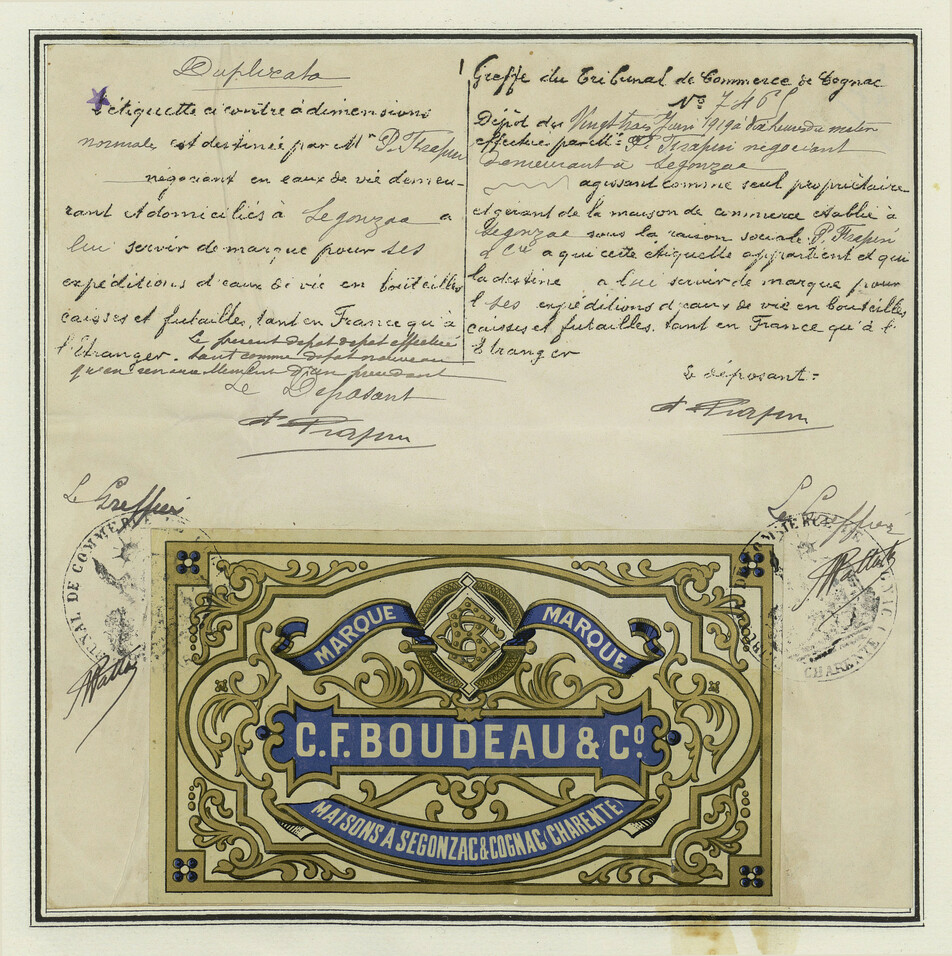 Duplicata
L'étiquette ci contre à dimensions
normales est destinée par Mr P. Frapin
négociant en eaux de vie demeu-
rant et domiciliés à Segonzac a
lui servir de marque pour ses
expéditions d'eaux de vie en bouteilles
caisses et futailles, tant en France qu'à
l'Etranger. Le present depot depot effectué
tant comme depot nouveau
qu'en renouvellement d'un precedent
Le Deposant
P. Frapin
Greffe du Tribunal de Commerce de Cognac
No 746
Dépôt du Vingt trois Juin 1919 à dix heures du matin
effectué par Mr P. Frapin négociant
demeurant à Segonzac
agissant comme seul propriétaire
et gérant de la maison de commerce établie à
Segonzac sous la raison sociale P. Frapin
& Cie a qui cette étiquette appartient et qui
la destine a lui servir de marque pour
ses expéditions d'eaux de vie en bouteilles
caisses et futailles, tant en France qu'à l'
Etranger
Le déposant =
P. Frapin
Le Greffier
TRIBUNAL DE COMMERCE
Le Greffier
CHARENTE
MARQUE MARQUE
C.F. BOUDEAU & Co.
MAISONS A SEGONZAC & COGNAC (CHARENTE)